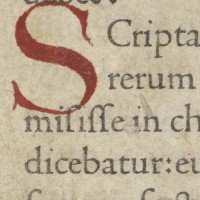 SCripta
rerum
misisse in ch
dicebatur: eu